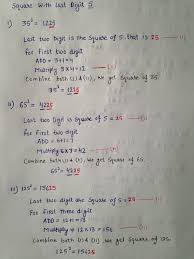 Square with last Digit 5
i) 35² = 1225
Last two digit is the Square of 5. that is 25 → (i)
For First two digit
ADD = 3+1 = 4
Multiply 3×4 = 12 → (ii)
Combine both (i) & (ii), we get Square of 35.
35² = 1225
ii) 65² = 4225
Last two Digit is Square of 5 = 25 → (i)
For First two Digit
ADD = 6+1 = 7
Multiply 6×7 = 42 → (ii)
Combine both (i) & (ii), we get Square of 65.
65² = 4225
iii) 125² = 15625
Last two digit the Square of 5 = 25 → (i)
For First three digit
ADD = 12+1 = 13
Multiply = 12×13 = 156 → (ii)
Combine both (i) & (ii), we get Square of 125.
125² = 15625